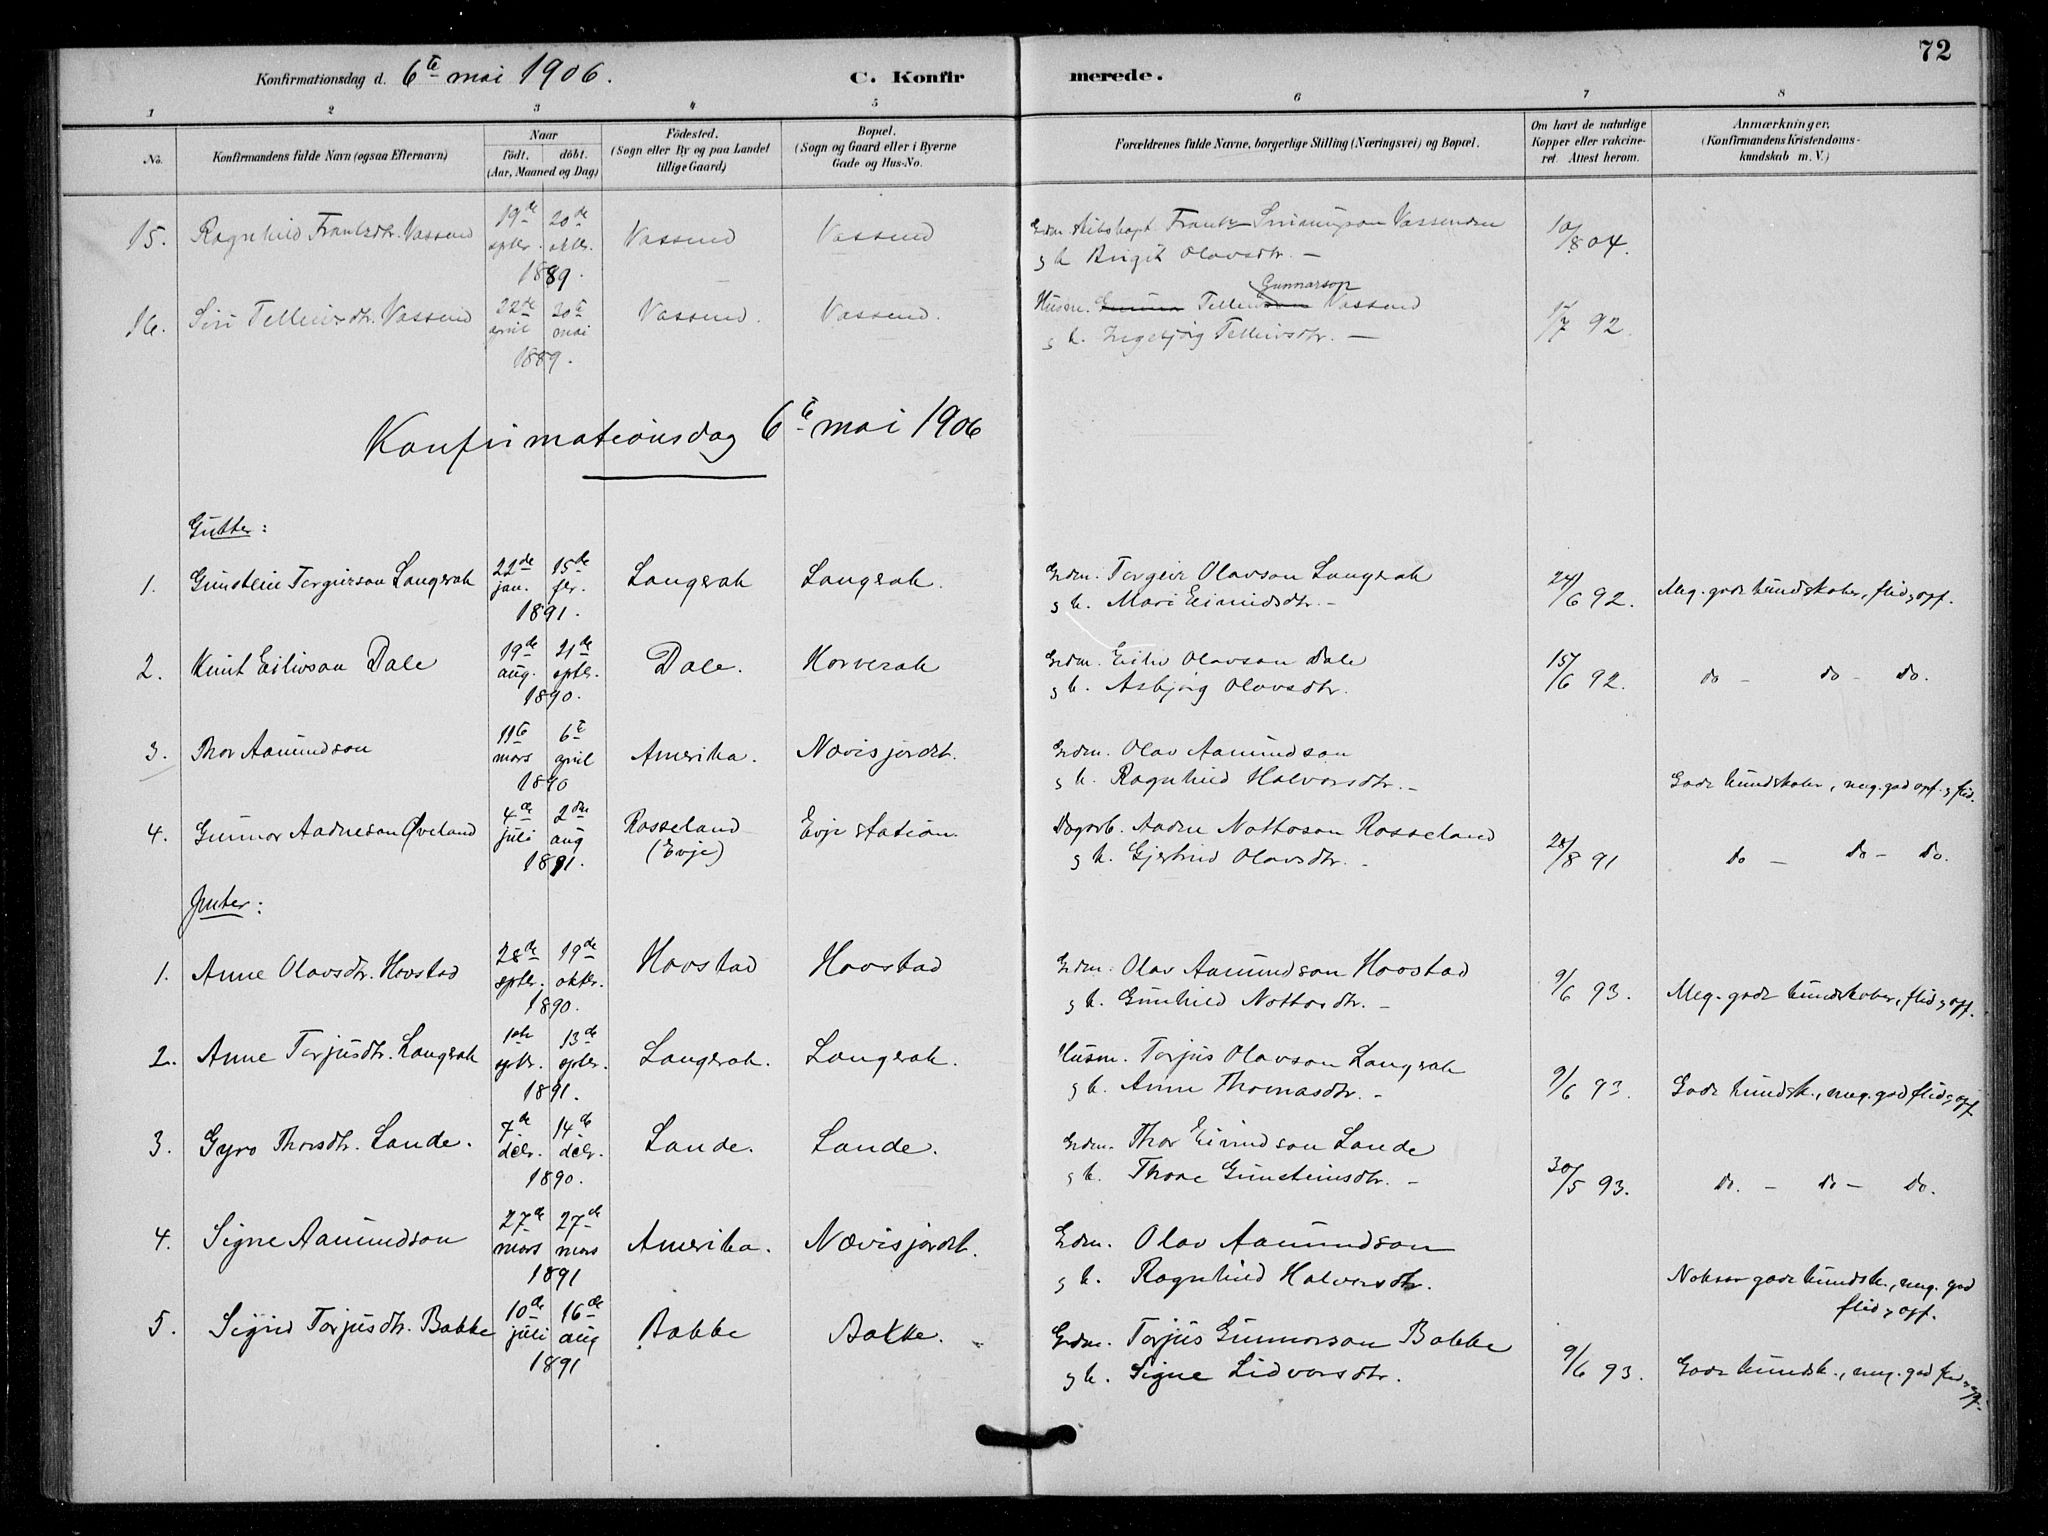 72
Konfirmationsdag d. 6te mai 1906. C. Konfirmerede.
1 2 3 4 5 6 7 8
No. Konfirmandens fulde Navn (ogsaa Efternavn) Naar födt. döbt. (Aar, Maaned og Dag) Födested. (Sogn eller By og paa Landet tillige Gaard) Bopæl. (Sogn og Gaard eller i Byerne Gade og Hus-No. Forældrenes fulde Navne, borgerlige Stilling (Næringsvei) og Bopæl. Om havt de naturlige Kopper eller vakcineret. Attest herom. Anmærkninger. (Konfirmandens Kristendomskundskab m. V.)
15. Ragnhild Frantzdtr. Vassend 19de sptbr. 20de oktbr. Vassend Vassend Frantz Vassenden 10/8 04.
1889. g h Birgit Olavsdtr. —
16. Siri Tellefsdtr. Vassend 22de april 20de mai Vassend. Vassend. Husm. Tellef Gunnarson Vassend 92.
1889. g h. Ingebjörg Tellefsdtr. —
Konfirmationsdag 6te mai 1906
Gutter:
1. Gunstein Torgeirson Langerak 22de jan. 15de fbr. Langerak Langerak. Grdm. Torgeir Olavson Langerak 24/6 92. Meg. gode kundskaber, flid og opf.
1891. g h. Mari Eivindsdtr. –
2. Knut Eilivson Dale 19de aug. 21de sptbr. Dale. Horverak Grdm. Eiliv Olavson Dale 15/6 92. do – do – do.
1890. g h. Asbjörg Olavsdtr.
3. Thor Aamundson 11te mars 6te april Amerika. Nævisjordet. Grdm. Olav Aamundson
1890 g h. Ragnhild Halvorsdtr. – Gode kundskaber, meg. god opf. og flid.
4. Gunnar Aadneson Øveland 4de juli 2den aug Rosseland (Evje) Evje station. Dagarb. Aadne Nottoson Rosseland 28/8 91 do – do – do.
1891. g h. Gjertrud Olavsdtr. –
Jenter:
1. Anne Olavsdtr. Hovstad 28de sptbr. 19de oktbr. Hovstad Hovstad Grdm. Olav Aamundson Hovstad 9/6 93. Meg. gode kundskaber, flid og opf.
1890. g h. Gunhild Nottosdtr. –
2. Anne Torjusdtr. Langerak 1ste sptbr. 13de sptbr. Langerak. Langerak. Husm. Torjus Olavson Langerak 9/6 93. Gode kundsk., meg. god flid og opf.
1891. g h. Anne Thomasdtr. –
3. Gyro Thorsdtr. Lande. 7de dcbr. 14de dcbr. Lande. Lande. Grdm. Thor Eivindson Lande 30/5 93. do. – do – do.
1890. g h. Thone Gunsteinsdtr. –
4. Signe Aamundson 27de mars 27de mars Amerika. Nævisjordet. Grdm. Olav Aamundson
1891 g h. Ragnhild Halvorsdtr. Noksaa gode kundsk., meg. god flid og opf.
5. Sigrid Torjusdtr. Bakke 10de juli 16de aug Bakke Bakke. Grdm. Torjus Gunnarson Bakke 9/6 93. Gode kundsk., meg. god flid og opf.
1891 g h. Signe Lidvorsdtr.